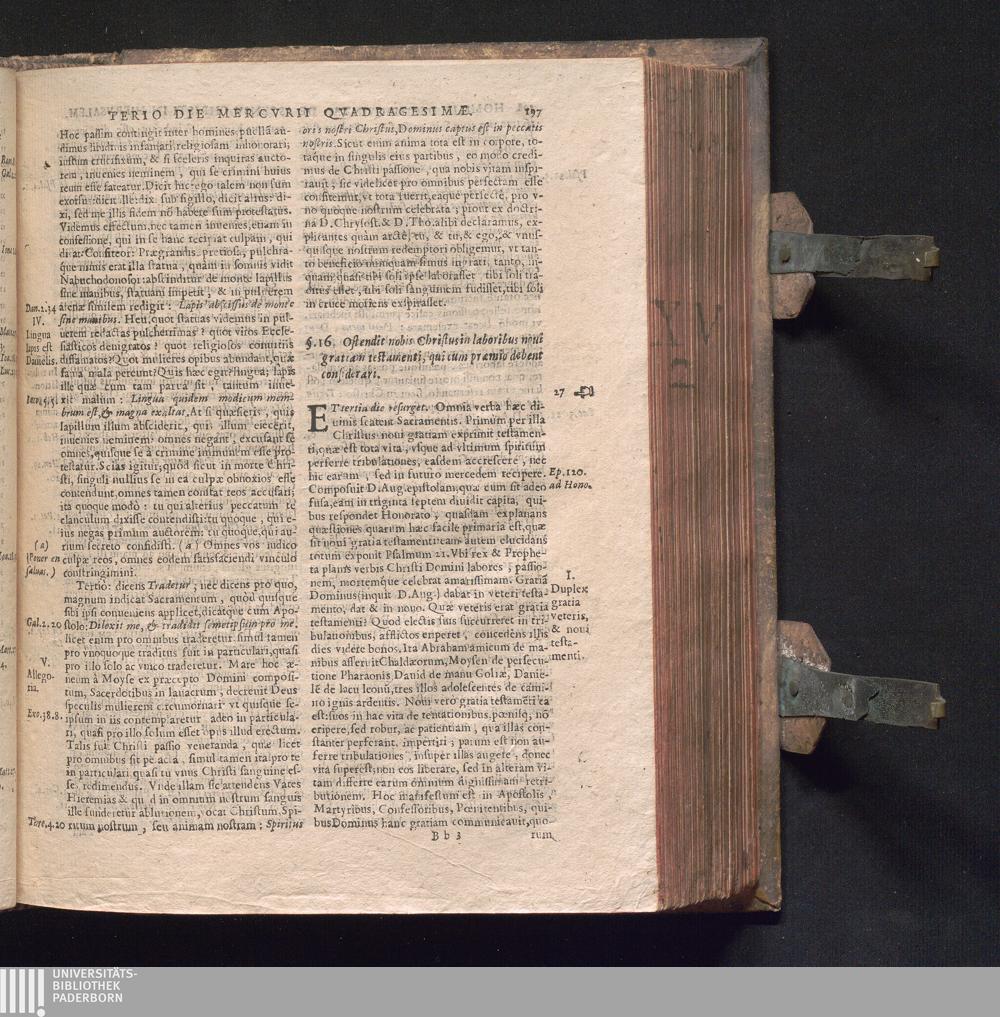 TERIO DIE MERCVRII QVADRAGESIMÆ. 197
Hoc passim contingit inter homines, puellã au-
dimus libidinis infamari, religiosam inhonorari;
iustum crucifixum, & si sceleris inquiras aucto-
rem, inuenies neminem, qui se crimini huius
reum esse fateatur. Dicit hic: ego talem non sum
exorsus: dicit ille: dixi sub sigillo, dicit alius: di-
xi, sed me illis fidem nõ habere sum protestatus.
Videmus effectum, nec tamen inuenies, etiam in
confessione, qui in se hanc recipiat culpam, qui
dicat: Confiteor: Prægrandis, pretiosa, pulchra-
que nimis erat illa statua, quam in somnis vidit
Nabuchodonosor: abscinditur de monte lapillus
sine manibus, statuam impetit, & in puluerem
Dan. 2. 34
arenæ similem redigit: Lapis abscissus de monte
IV.
sine manibus. Heu, quot statuas videmus in pul-
Lingua
uerem redactas pulcherrimas? quot viros Eccle-
lapis est
siasticos denigratos? quot religiosos conuitiis
Danielis.
diffamatos? Quot mulieres opibus abundant, quæ
fama mala pereunt? Quis hæc egit? lingua; lapis
ille quæ cum tam parua sit, tantum inue-
Iacob. 3. 5.
xit malum: Lingua quidem modicum mem-
brum est, & magna exaltat. At si quæsieris, quis
lapillum illum absciderit, qui illum eiecerit,
inuenies neminem: omnes negant, excusant se
omnes, quisque se à crimine immunem esse pro-
testatur. Scias igitur, quòd sicut in morte Chri-
sti, singuli nullius se in ea culpæ obnoxios esse
contendunt, omnes tamen constat reos accusari;
ita quoque modò: tu qui alterius peccatum te
clanculum dixisse contendisti: tu quoque, qui e-
ius negas primum auctorem: tu quoque, qui au-
(a)
rium secreto confidisti. (a) Omnes vos iudico
(Poner en
culpæ reos, omnes eodem satisfaciendi vinculo
saluas.)
constringimini.
Tertiò: dicens Tradetur, nec dicens pro quo,
magnum indicat Sacramentum, quòd quisque
sibi ipsi conueniens applicet, dicatque cum Apo-
Gal. 2. 20
stolo: Dilexit me, & tradidit semetipsum pro me.
licet enim pro omnibus traderetur simul tamen
pro vnoquoque traditus fuit in particulari, quasi
V.
pro illo solo ac vnico traderetur. Mare hoc æ-
Allego-
neum à Moyse ex præcepto Domini composi-
ria.
tum, Sacerdotibus in lauacrum, decreuit Deus
speculis mulierem circumornari vt quisque se-
Exo. 38. 8.
ipsum in iis contemplaretur adeo in particula-
ri, quasi pro illo solum esset opus illud erectum.
Talis fuit Christi passio veneranda, quæ licet
pro omnibus sit peracta, simul tamen ita pro te
in particulari quasi tu vnus Christi sanguine es-
se redimendus. Vnde illam sic attendens Vates
Hieremias & quòd in omnium nostrum sanguis
ille funderetur ablutionem, vocat Christum, Spi-
Thre. 4. 20
ritum nostrum, seu animam nostram: Spiritus
oris nostri Christus, Dominus captus est in peccatis
nostris. Sicut enim anima tota est in corpore, to-
taque in singulis eius partibus, eo modo credi-
mus de Christi passione, qua nobis vitam inspi-
rauit, sic videlicet pro omnibus perfectam esse
confitemur, vt tota fuerit, eaque perfectè, pro v-
no quoque nostrum celebrata; prout ex doctri-
na D. Chrysost. & D. Tho. alibi declaramus, ex-
plicantes quàm arctè, tu, & tu, & ego, & vnus-
quisque nostrum redemptori obligemur, vt tan-
to beneficio numquam simus ingrati, tanto, in-
quam quasi tibi soli ipse laborasset tibi soli tra-
ditus esset, tibi soli sanguinem fudisset, tibi soli
in cruce moriens expirasset.
§. 16. Ostendit nobis Christus in laboribus noui
gratiam testamenti, qui cum præmio debent
considerari.
27
ET tertia die resurget. Omnia verba hæc di-
uinis scatent Sacramentis. Primùm per illa
Christus noui gratiam exprimit testamen-
ti, quæ est tota vita, vsque ad vltimum spiritum
perferre tribulationes, easdem accrescere, nec
hic earum, sed in futuro mercedem recipere.
Ep. 120.
Composuit D. Aug. epistolam, quæ cum sit adeo
ad Hono.
fusa, eam in triginta septem diuidit capita, qui-
bus respondet Honorato, quasdam explanans
quæstiones quarum hæc facile primaria est, quæ
sit noui gratia testamenti: eam autem elucidans
totum exponit Psalmum 21. Vbi rex & Prophe-
ta planis verbis Christi Domini labores, passio-
nem, mortemque celebrat amarissimam. Gratiã
I.
Dominus (inquit D. Aug.) dabat in veteri testa-
Duplex
mento, dat & in nouo. Quæ veteris erat gratia
gratia
testamenti? Quod electis suis succurreret in tri-
veteris,
bulationibus, afflictos eriperet, concedens illis
& noui
dies videre bonos. Ita Abraham amicum de ma-
testa-
nibus asseruit Chaldæorum, Moysen de persecu-
menti.
tione Pharaonis, Dauid de manu Goliæ, Danie-
lẽ de lacu leonũ, tres illos adolescentes de cami-
no ignis ardentis. Noui verò gratia testamẽti ea
est: suos in hac vita de tentationibus, pœnisq́;, nõ
eripere, sed robur, ac patientiam, qua illas con-
stanter perferant, impertiri; parum est non au-
ferre tribulationes, insuper illas augere, donec
vita superest, non eos liberare, sed in alteram vi-
tam differre earum omnium dignissimam retri-
butionem. Hoc manifestum est in Apostolis,
Martyribus, Confessoribus, Pœnitentibus, qui-
bus Dominus hanc gratiam communicauit, quo-
B b 3
rum
UNIVERSITÄTS-
BIBLIOTHEK
PADERBORN